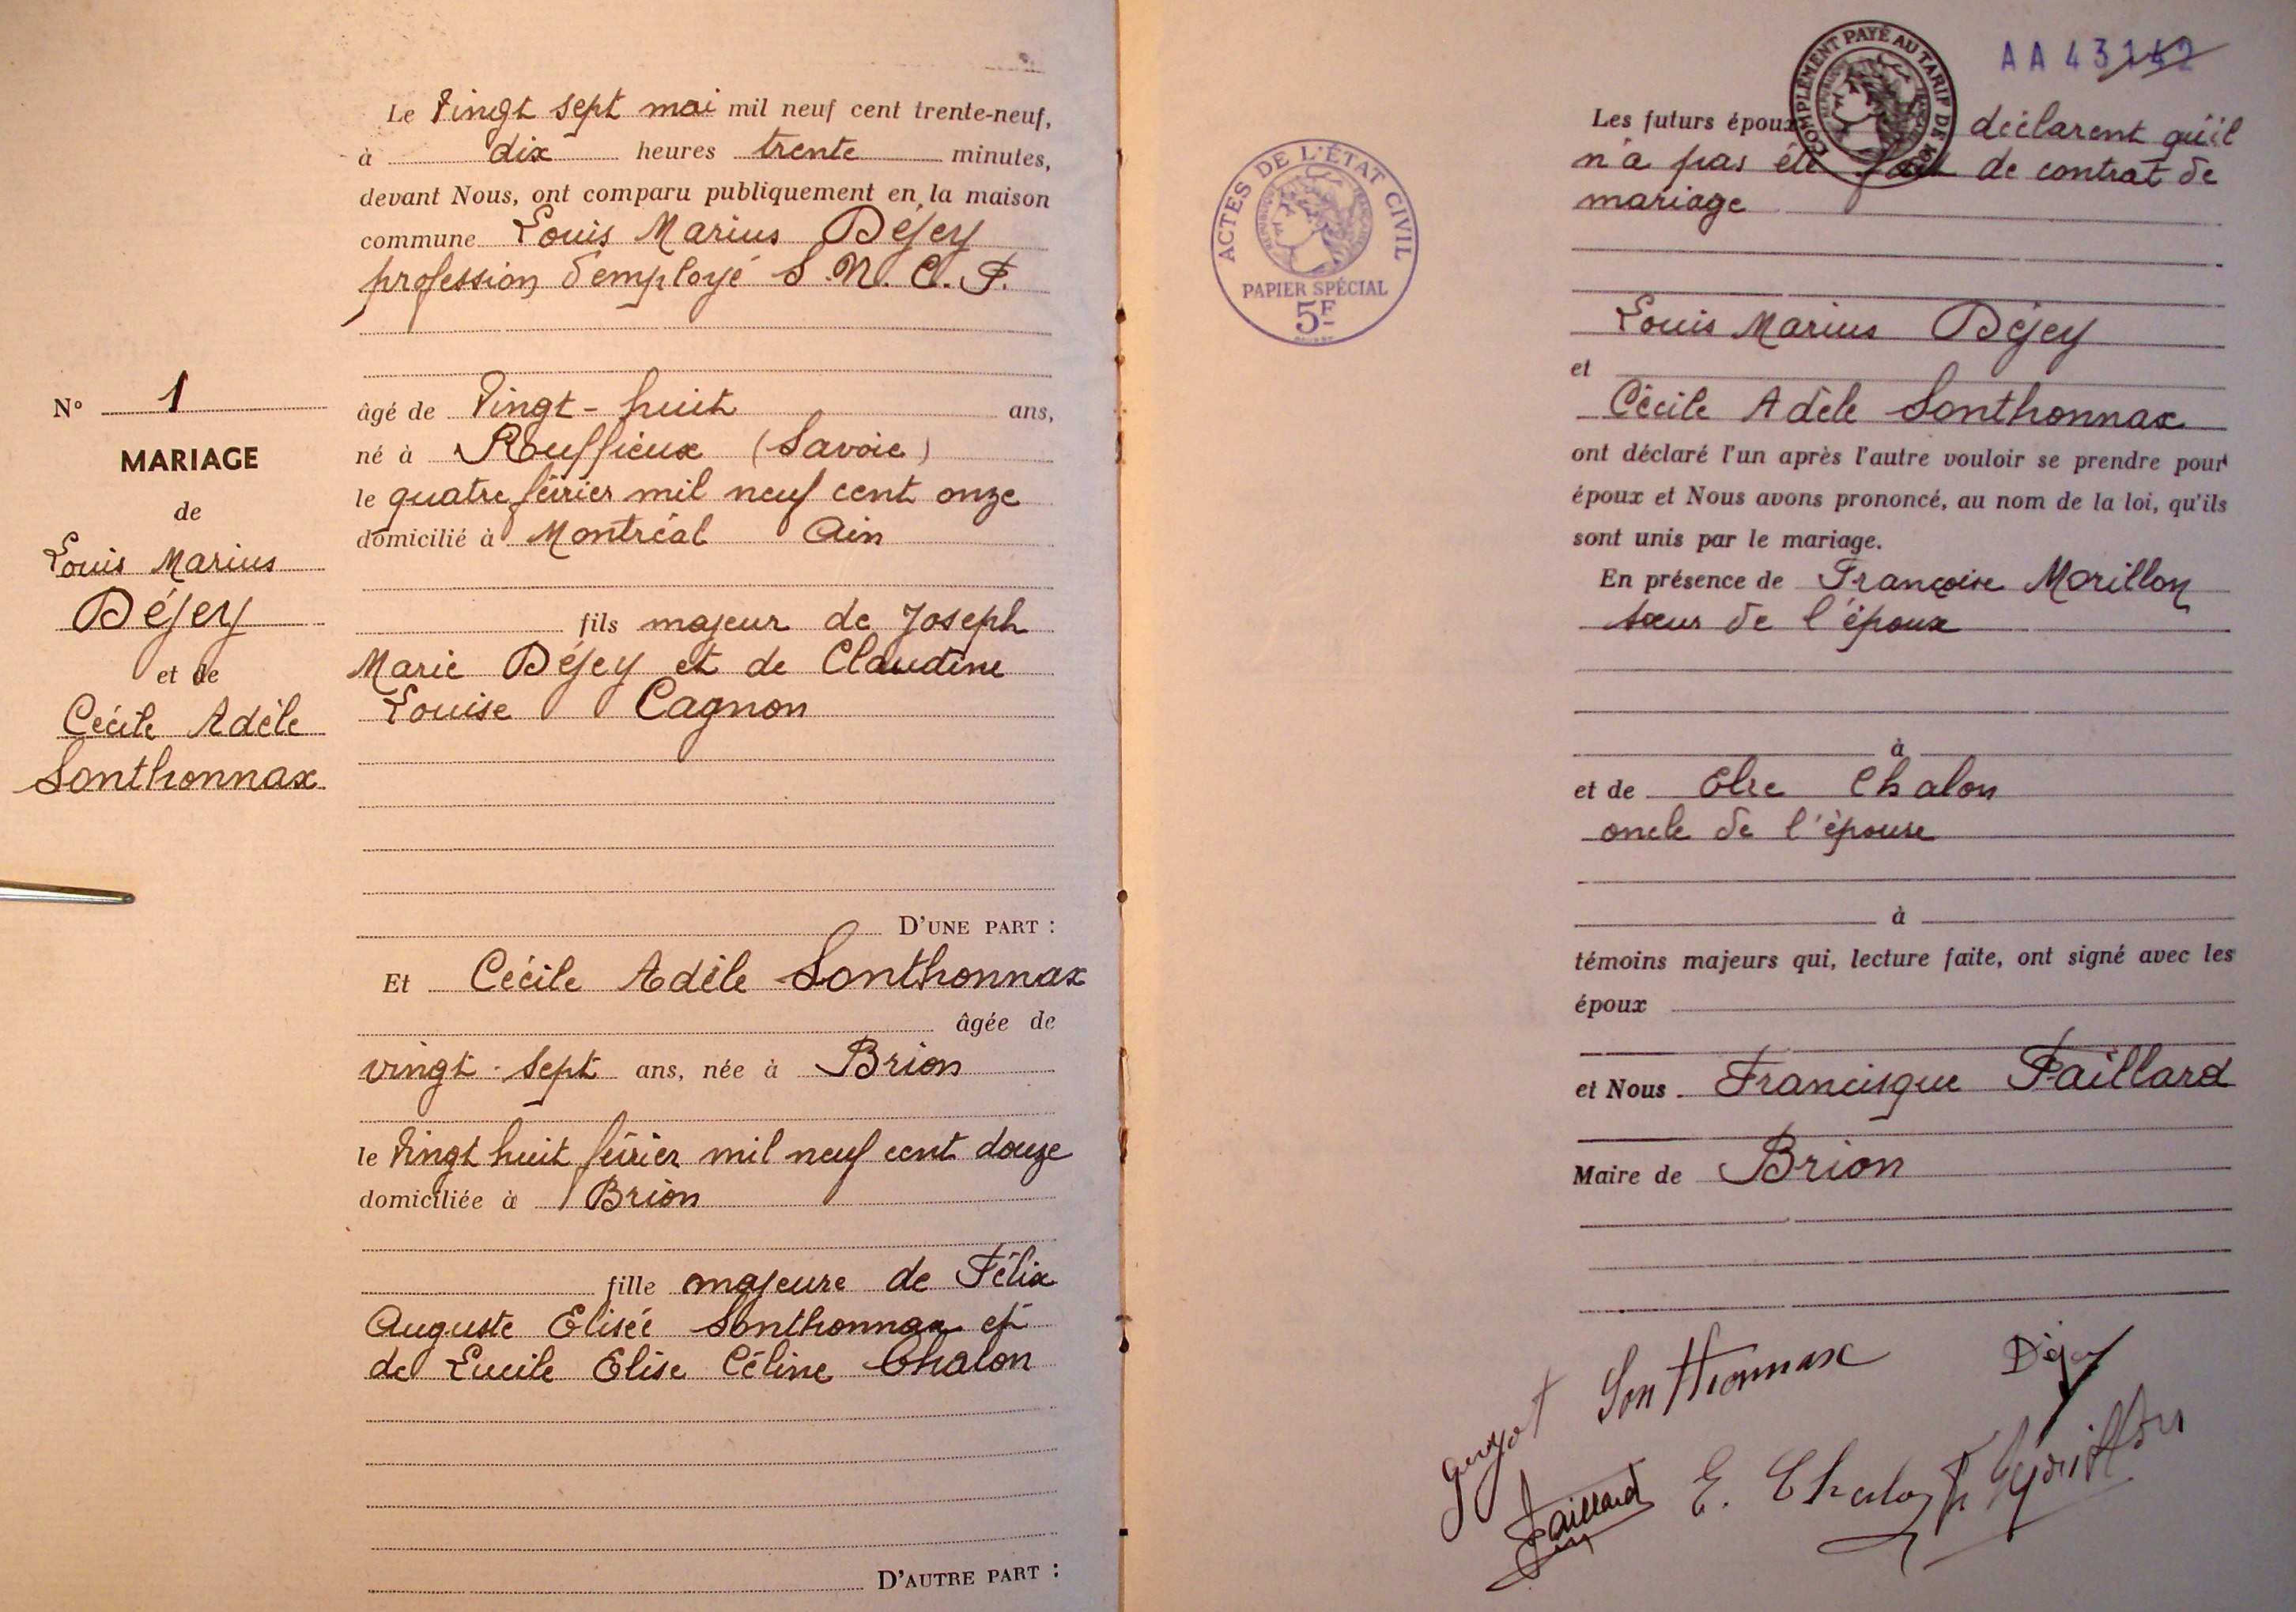 Le Vingt sept mai mil neuf cent trente-neuf,
à dix heures trente minutes,
devant Nous, ont comparu publiquement en la maison
commune Louis Marius Déjey
profession d'employé S.N.C.F.
N° 1
MARIAGE
de
Louis Marius
Déjey
et de
Cécile Adèle
Sonthonnax
âgé de Vingt-huit ans,
né à Ruffieux (Savoie)
le quatre février mil neuf cent onze
domicilié à Montréal Ain
fils majeur de Joseph
Marie Déjey et de Claudine
Louise Cagnon
D'UNE PART :
Et Cécile Adèle Sonthonnax
âgée de
vingt-sept ans, née à Brion
le Vingt huit février mil neuf cent douze
domiciliée à Brion
fille majeure de Félix
Auguste Elisée Sonthonnax et
de Lucile Elise Céline Chalon
D'AUTRE PART :
ACTES DE L'ÉTAT CIVIL
PAPIER SPÉCIAL
5F
COMPLÉMENT PAYÉ AU TARIF DE
AA 43142
Les futurs époux déclarent qu'il
n'a pas été fait de contrat de
mariage
Louis Marius Déjey
et
Cécile Adèle Sonthonnax
ont déclaré l'un après l'autre vouloir se prendre pour
époux et Nous avons prononcé, au nom de la loi, qu'ils
sont unis par le mariage.
En présence de Françoise Morillon
sœur de l'époux
à
et de Chalon
oncle de l'épouse
à
témoins majeurs qui, lecture faite, ont signé avec les
époux
et Nous Francisque Faillard
Maire de Brion
Sonthonnax Déjey
Guyot
Faillard E. Chalon